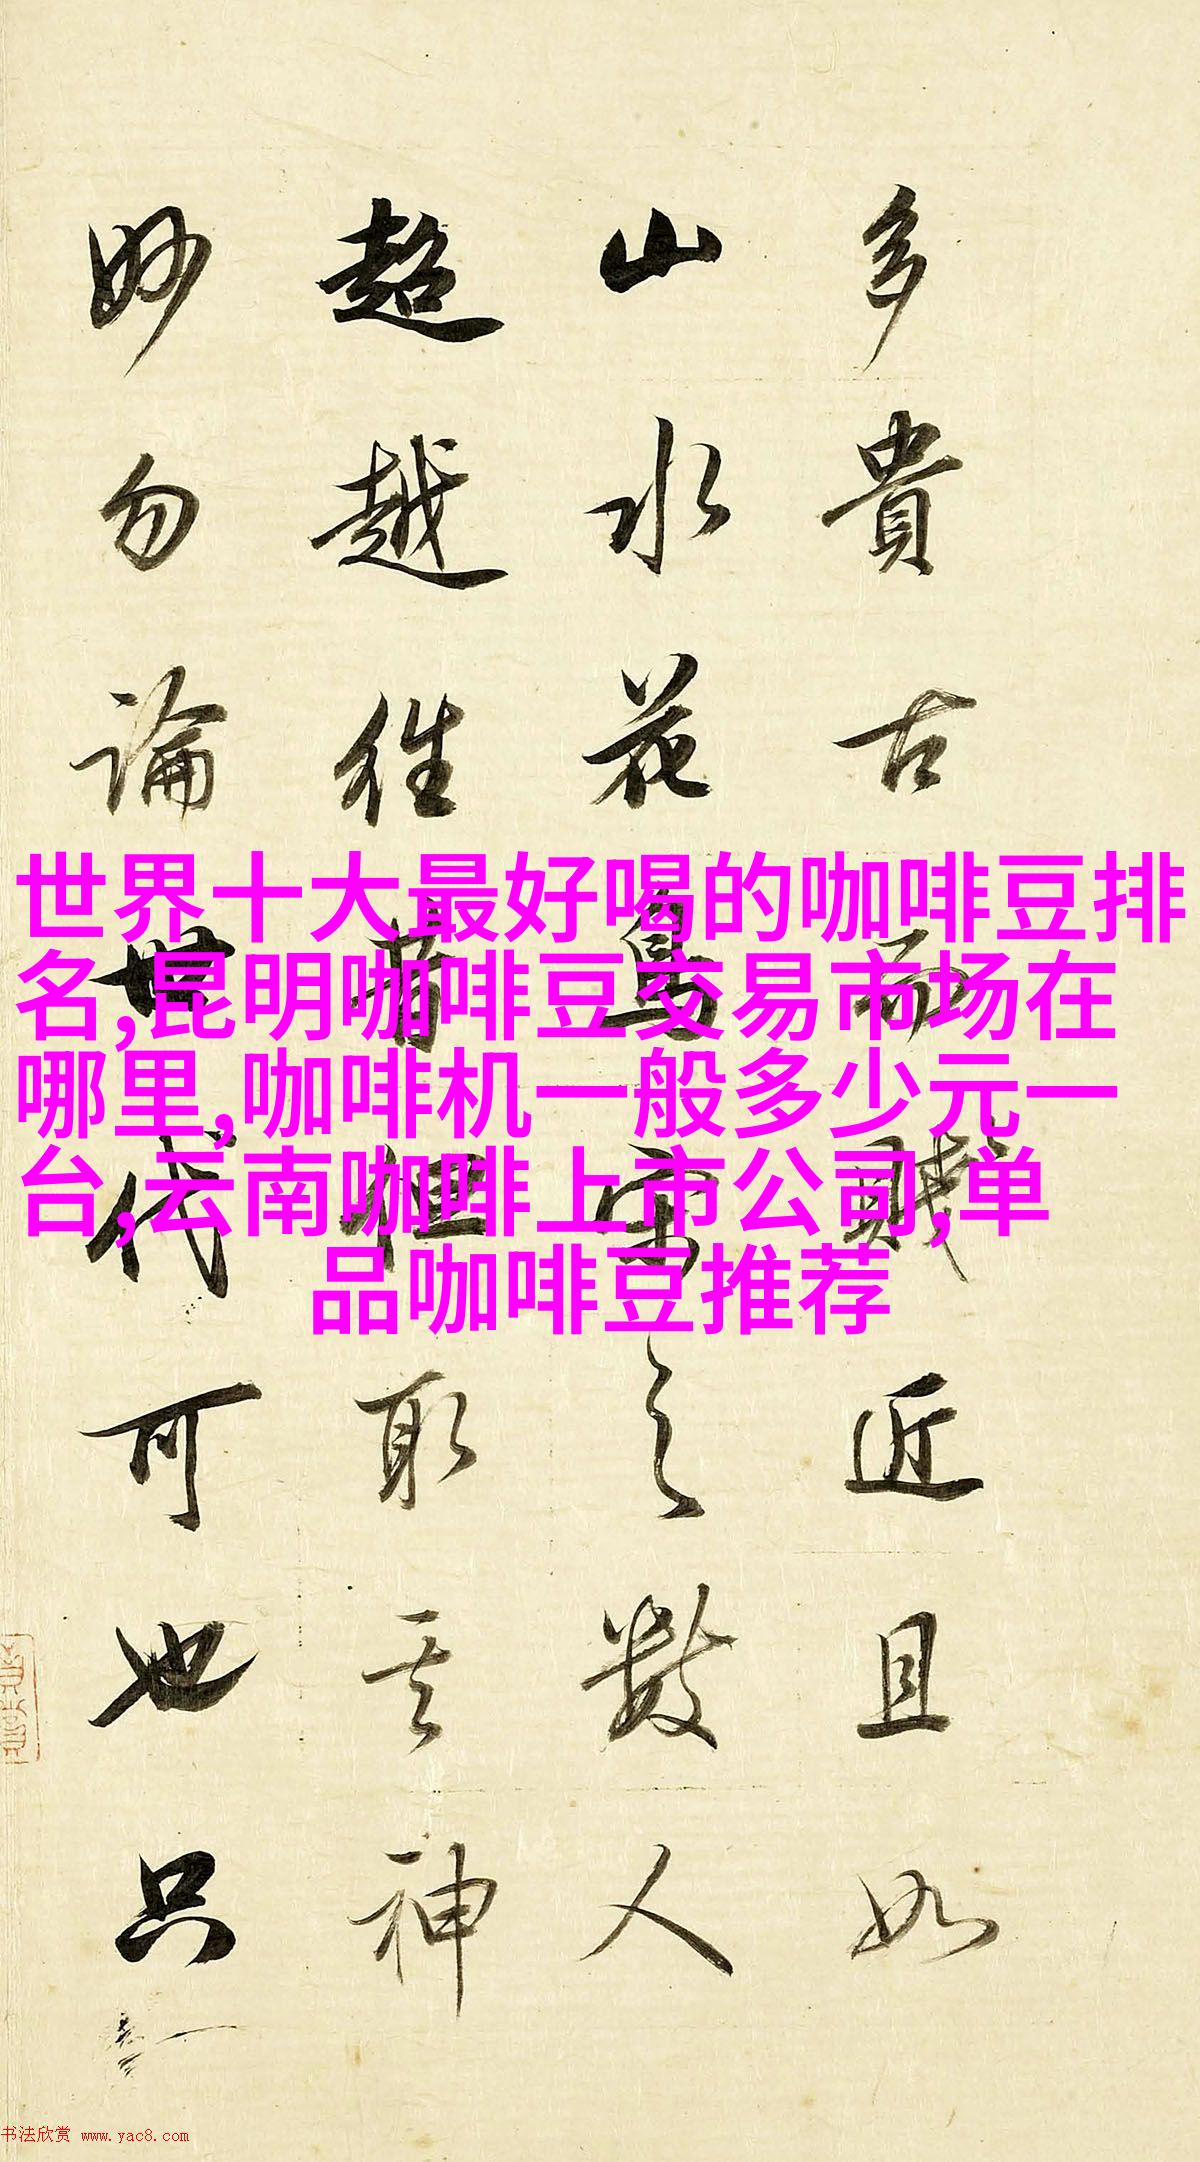 多貴古而賤近且如
山水花鳥之數人
超越往昔但取其神
妙勿論世代可也只
世界十大最好喝的咖啡豆排
名,昆明咖啡豆交易市场在
哪里,咖啡机一般多少元一
台,云南咖啡上市公司,单
品咖啡豆推荐
书法欣赏 www.yac8.com